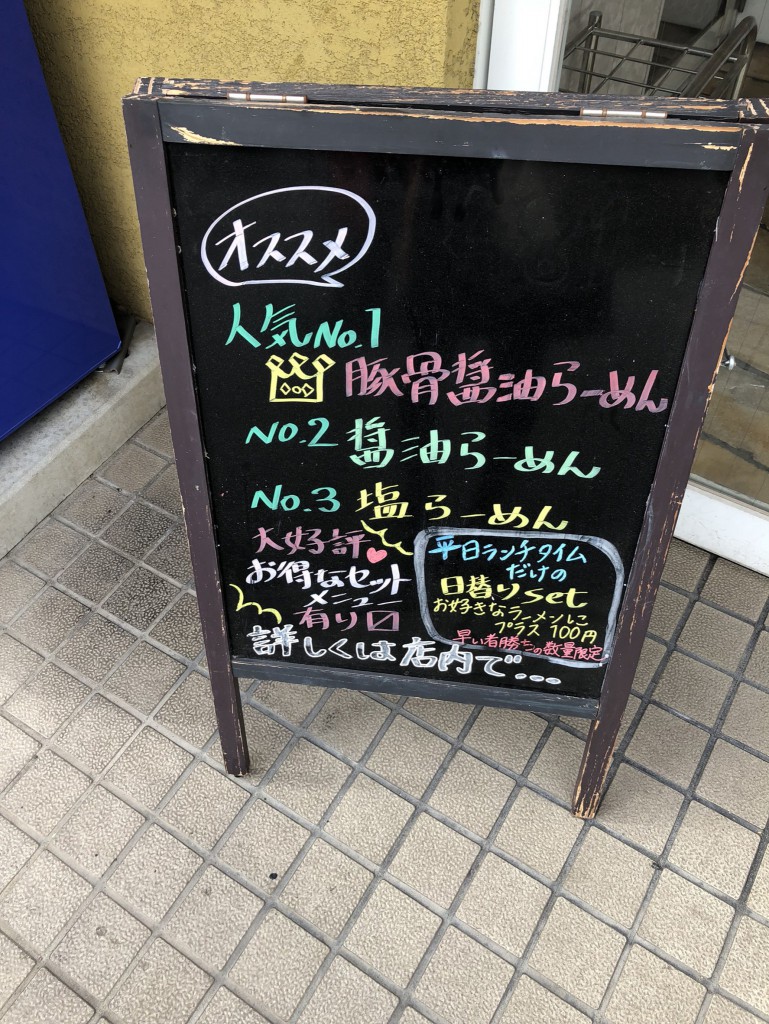 オススメ
人気No.1
豚骨醤油らーめん
No.2 醤油らーめん
No.3 塩らーめん
大好評
お得なセット
メニュー
有り〼
平日ランチタイム
だけの
日替りset
お好きなラーメンに
プラス100円
早い者勝ちの数量限定
詳しくは店内で…